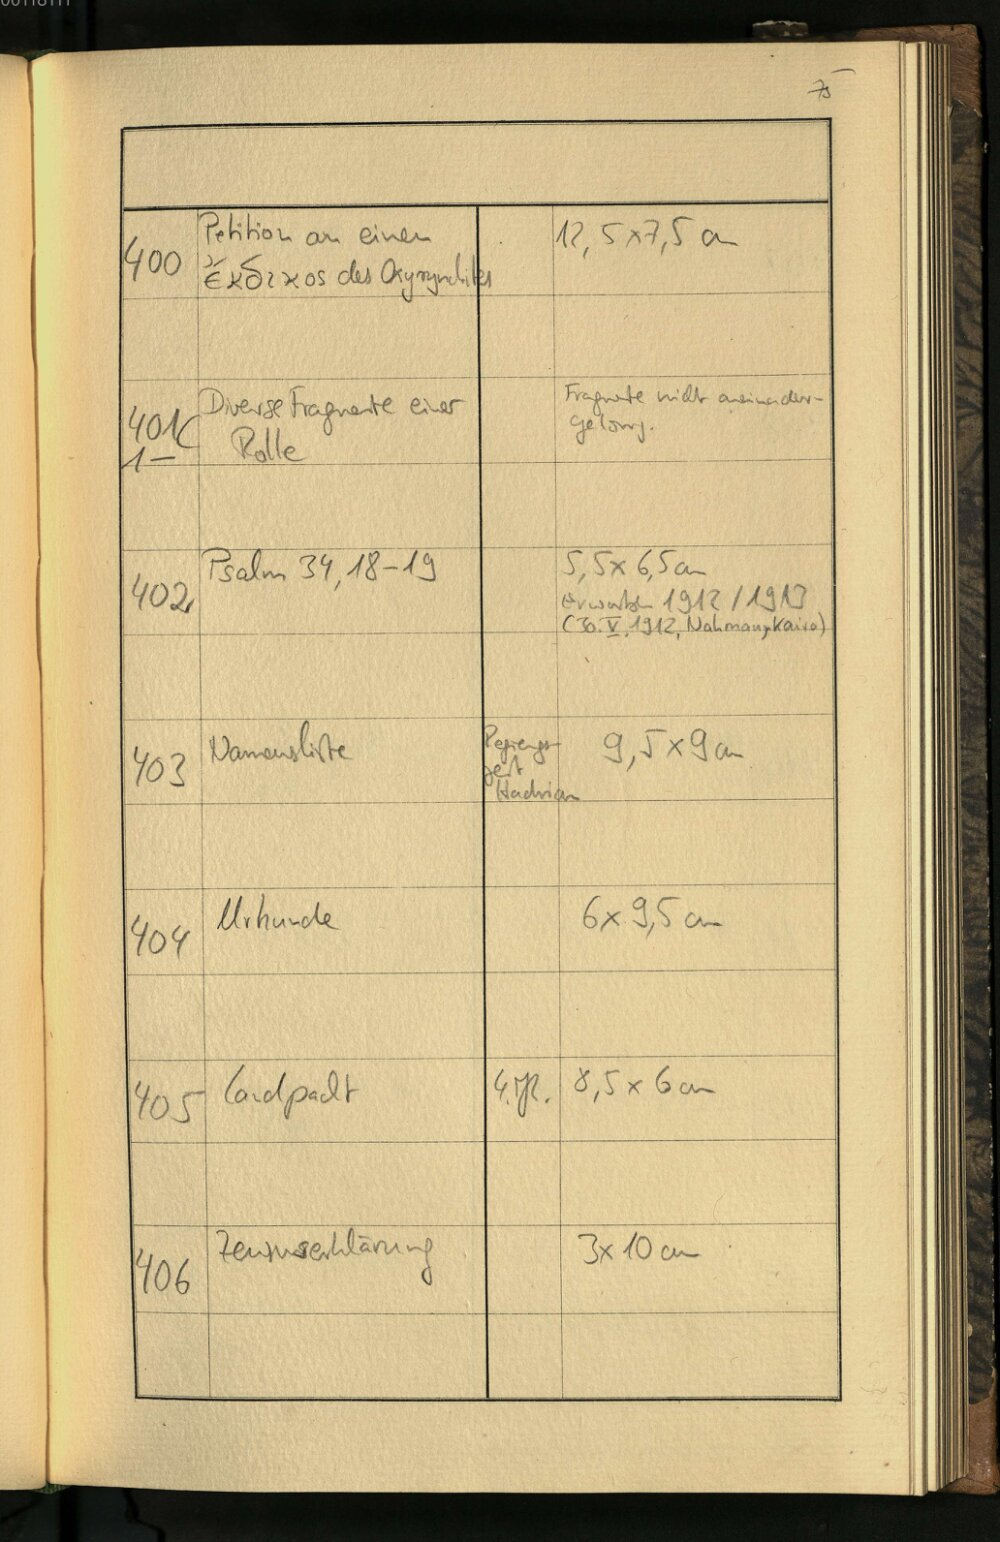 75
400 Petition an einen 12,5 x 7,5 cm
ἔκδικος des Oxyrynchites
401( Diverse Fragmente einer Fragmente nicht aneinander-
1— Rolle
402 Psalm 34, 18-19 5,5 x 6,5 cm
erworben 1912/1913
(30. V. 1912, Nahman, Kairo)
403 Namensliste Regierungs- 9,5 x 9 cm
zeit
Hadrian
404 Urkunde 6 x 9,5 cm
405 Landpacht 4. Jh. 8,5 x 6 cm
406 Zensuserklärung 3 x 10 cm